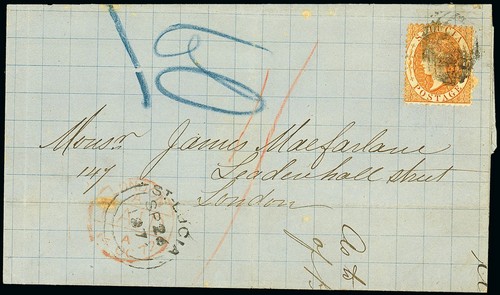 10
ST LUCIA
POSTAGE
Messrs James Macfarlane
147 Leadenhall street
London
ST. LUCIA
SP 26